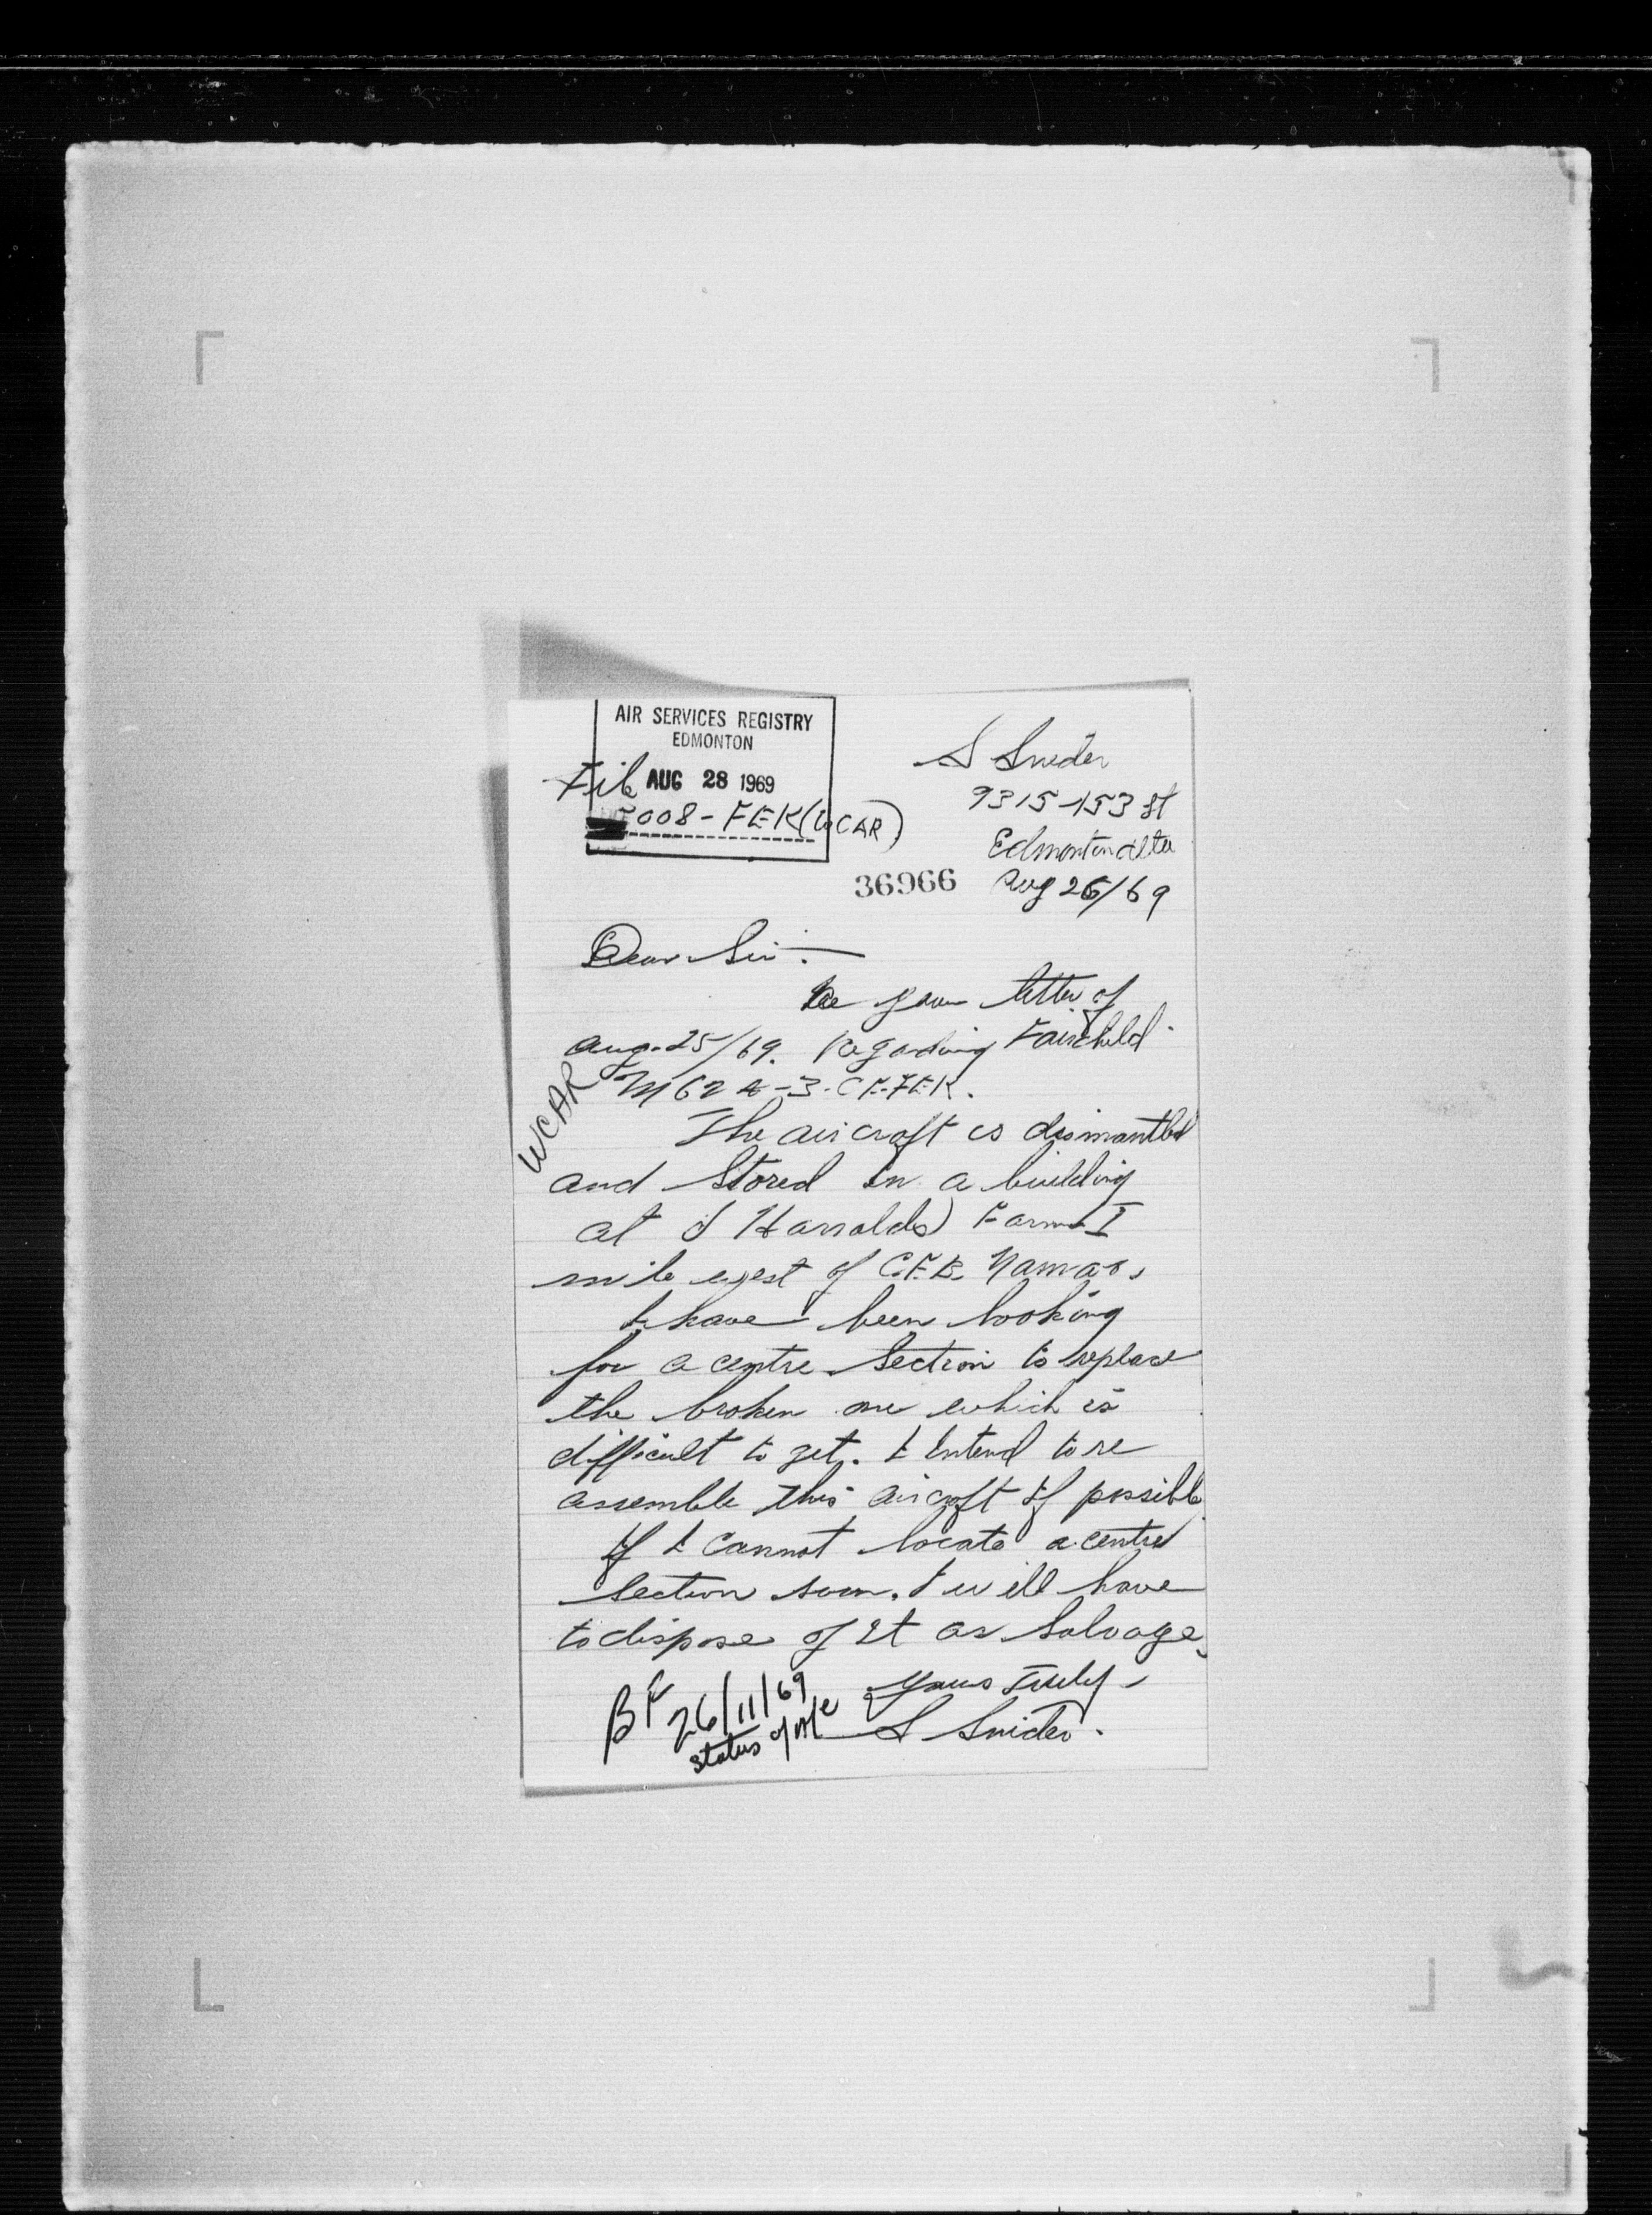 AIR SERVICES REGISTRY
EDMONTON
File AUG 28 1969
5008-FEK (WCAR)
36966
S Snider
9315-153 St
Edmonton Alta
Aug 26/69
Dear Sir:—
Re your letter of
Aug. 25/69. Regarding Fairchild
M62A-3. CF.FEK.
WCAR
The aircraft is dismantled
and Stored in a building
at Harrolds Farm I
mile west of C.F.B. Namao.
I have been looking
for a centre Section to replace
the broken one which is
difficult to get. I Intend to re
assemble this aircraft If possible
If I Cannot locate a centre
Section soon. I will have
to dispose of It as Salvage.
Yours Truly
S Snider.
BF 26/11/69
status of A/C